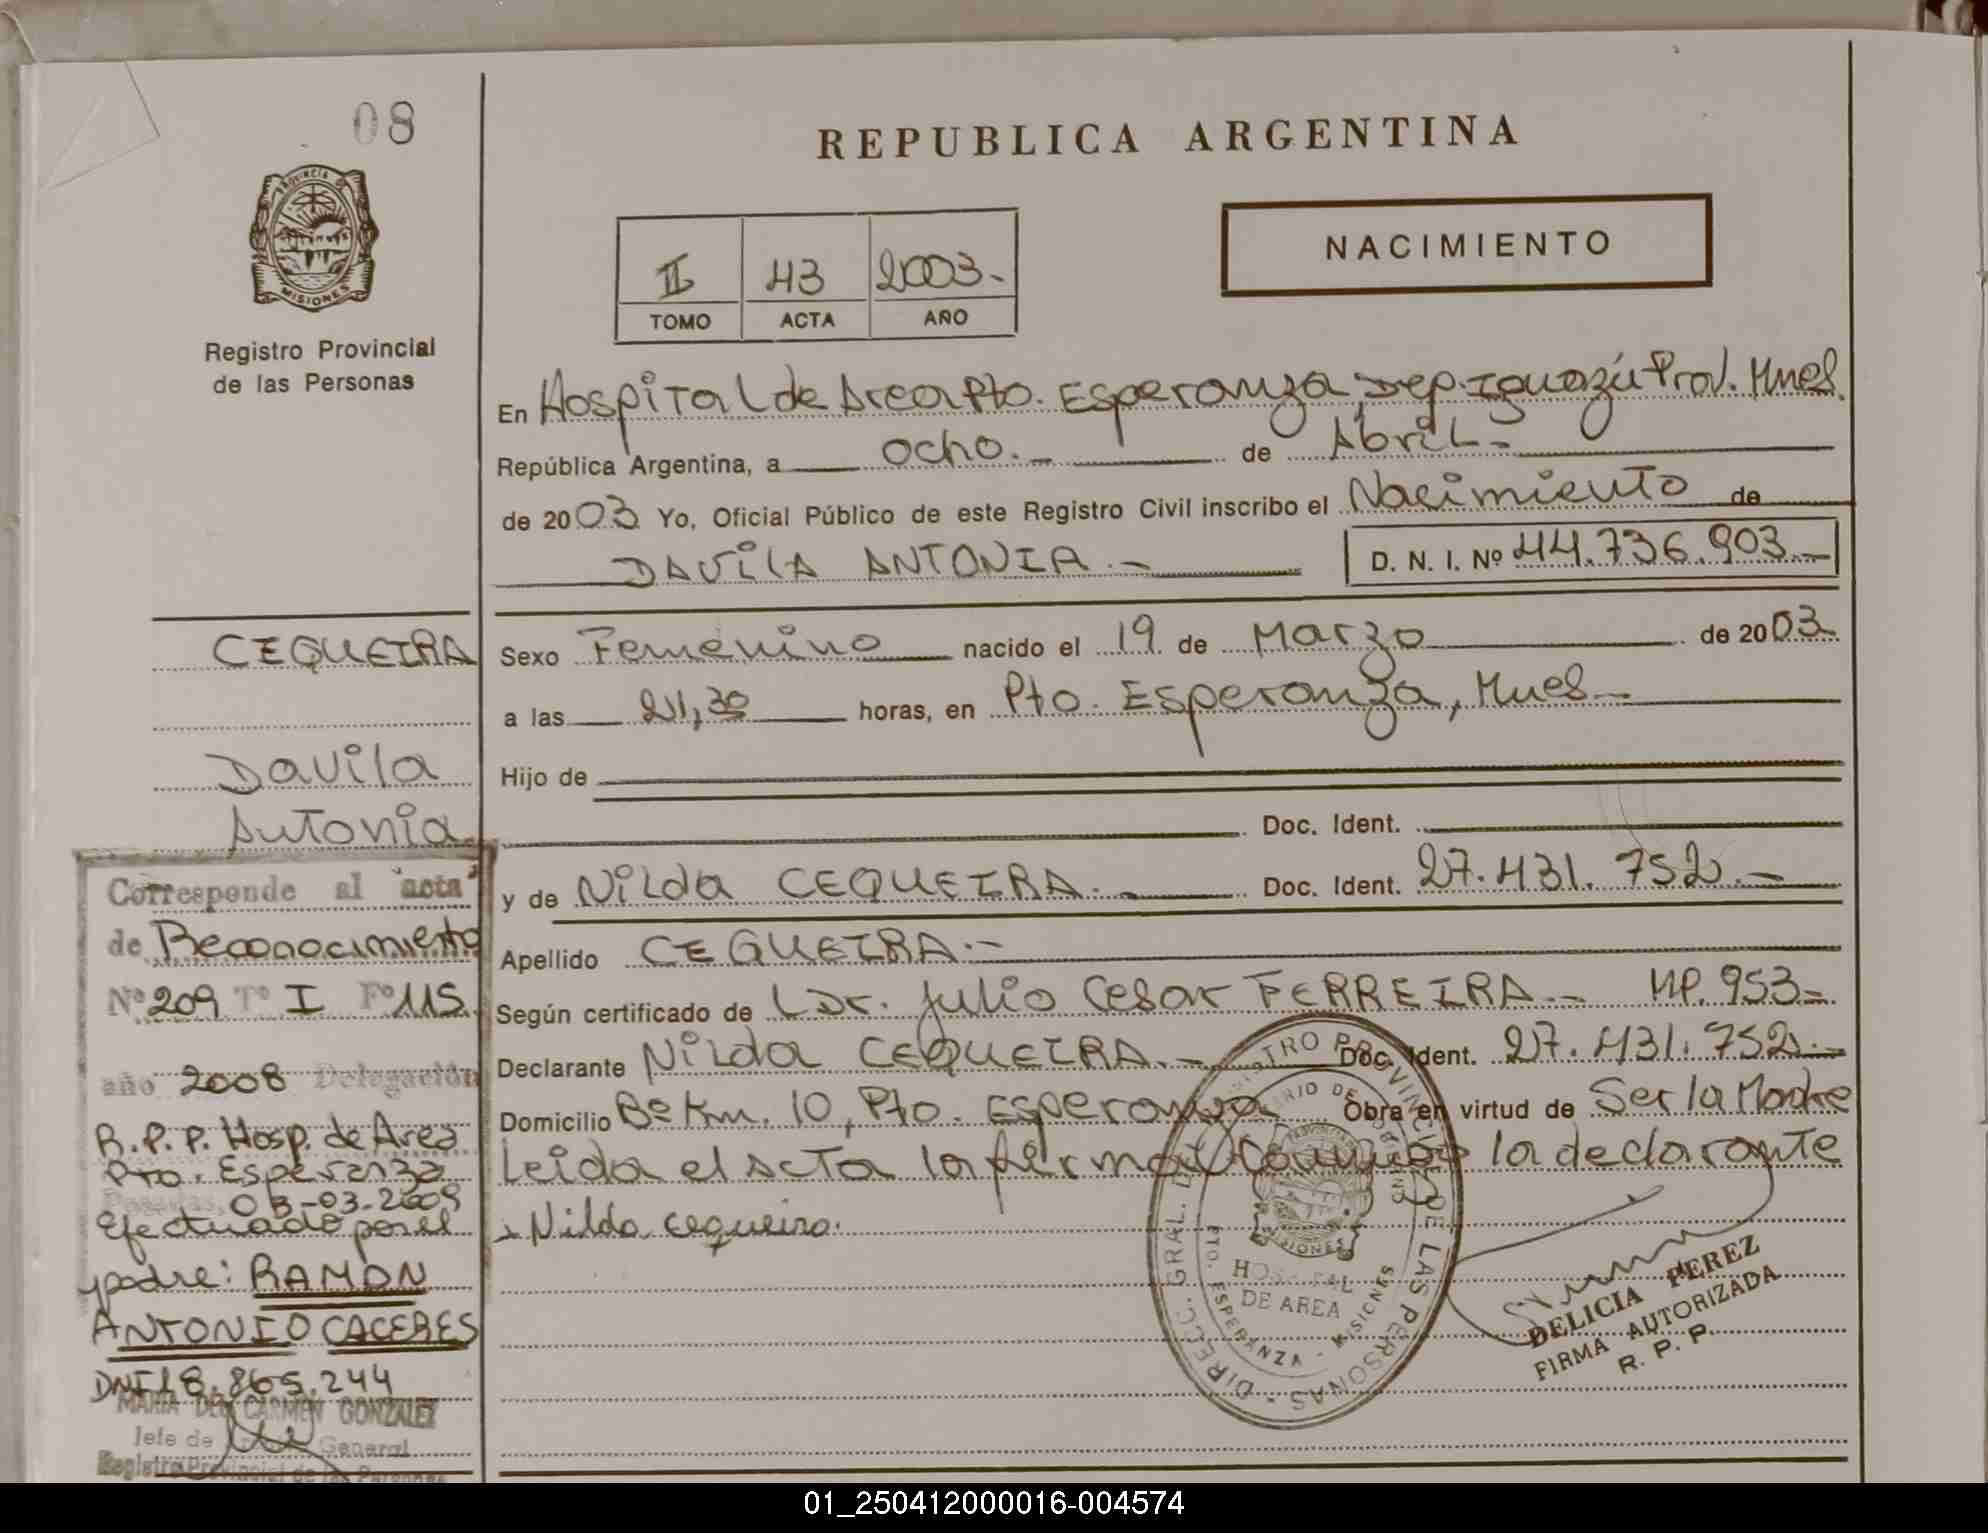 08
PROVINCIA DE
MISIONES
Registro Provincial
de las Personas
REPUBLICA ARGENTINA
NACIMIENTO
II 43 2003.-
TOMO ACTA AÑO
En Hospital de Area Pto. Esperanza, Dep. Iguazú Prov. Mnes.
República Argentina, a ocho.- de Abril-
de 2003 Yo, Oficial Público de este Registro Civil inscribo el Nacimiento de
DAViLA ANTONIA.- D. N. I. Nº 44.736.903.-
Sexo Femenino nacido el 19 de Marzo de 2003
a las 21,30 horas, en Pto. Esperanza, Mnes-
Hijo de
Doc. Ident.
y de Nilda CEQUEIRA.- Doc. Ident. 27.431.752.-
Apellido CEQUEIRA.-
Según certificado de Dr. Julio Cesar FERREIRA.- MP. 953-
Declarante Nilda CEQUEIRA.- Doc. Ident. 27.431.752.-
Domicilio Bº Km. 10, Pto. Esperanza Obra en virtud de Ser la Madre
Leida el Acta la firma conmigo la declarante
Nilda Cequeira.
CEQUEIRA
Davila
Antonia
Corresponde al "acta"
de Reconocimiento
Nº 209 Tº I Fº 115
año 2008 Delegación
R.P.P. Hosp. de Area
Pto. Esperanza
Posadas, 03-03-2009
Efectuado por el
padre: RAMON
ANTONIO CACERES
DNI 18.865.244
MARIA DEL CARMEN GONZALEZ
Jefe de General
Registro Provincial de las Personas
DIRECC. GRAL. DE REGISTRO PROVINCIAL DE LAS PERSONAS
MISIONES
HOSPITAL
DE AREA
PTO. ESPERANZA - MISIONES
DELICIA PEREZ
FIRMA AUTORIZADA
R. P. P.
01_250412000016-004574